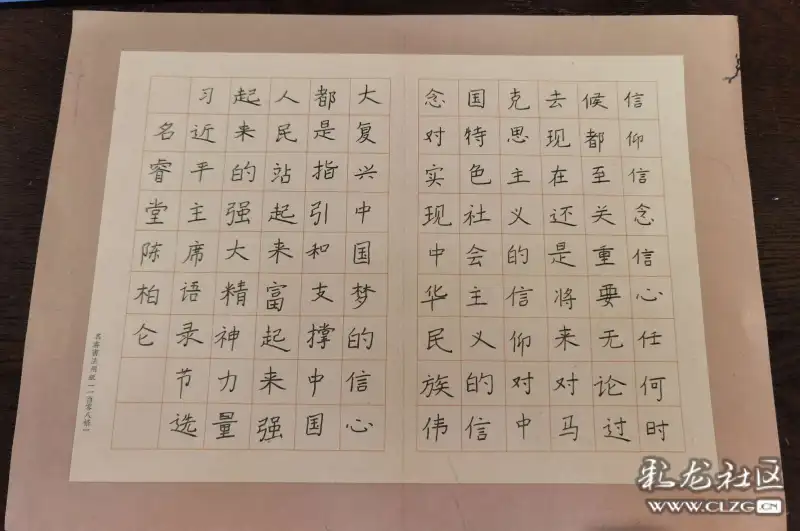 信仰信念信心任何时
候都至关重要无论过
去现在还是将来对马
克思主义的信仰对中
国特色社会主义的信
念对实现中华民族伟
大复兴中国梦的信心
都是指引和支撑中国
人民站起来富起来强
起来的强大精神力量
习近平主席语录节选
名睿堂陈柏仑
書法用紙
彩龙社区
WWW.CLZG.CN